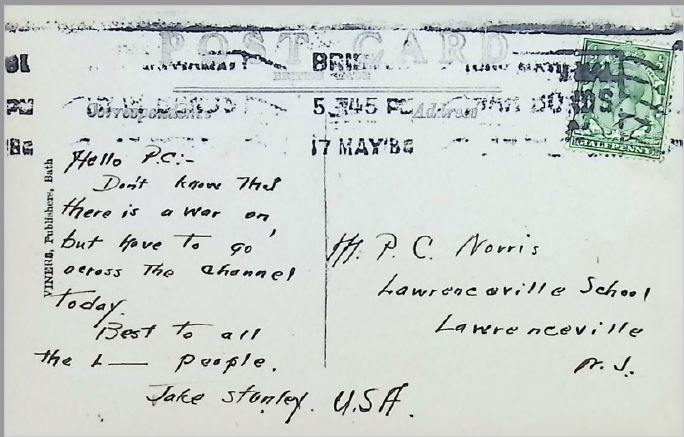 POST CARD
BRITISH MADE
Correspondence
Address
5 45 PM
17 MAY
VINERS, Publishers, Bath
Hello P.C:-
Don't know that
there is a war on
but have to go
across the channel
today.
Best to all
the L— people.
Jake Stanley. U.S.A.
M. P. C. Norris
Lawrenceville School
Lawrenceville
N. J.